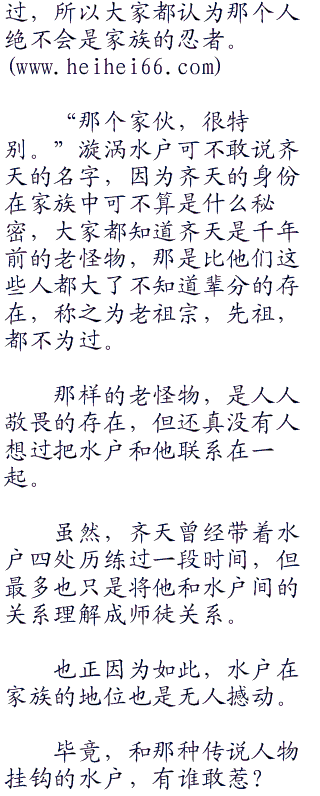 过，所以大家都认为那个人
绝不会是家族的忍者。
(www.heihei66.com)
“那个家伙，很特
别。”漩涡水户可不敢说齐
天的名字，因为齐天的身份
在家族中可不算是什么秘
密，大家都知道齐天是千年
前的老怪物，那是比他们这
些人都大了不知道辈分的存
在，称之为老祖宗，先祖，
都不为过。
那样的老怪物，是人人
敬畏的存在，但还真没有人
想过把水户和他联系在一
起。
虽然，齐天曾经带着水
户四处历练过一段时间，但
最多也只是将他和水户间的
关系理解成师徒关系。
也正因为如此，水户在
家族的地位也是无人撼动。
毕竟，和那种传说人物
挂钩的水户，有谁敢惹？